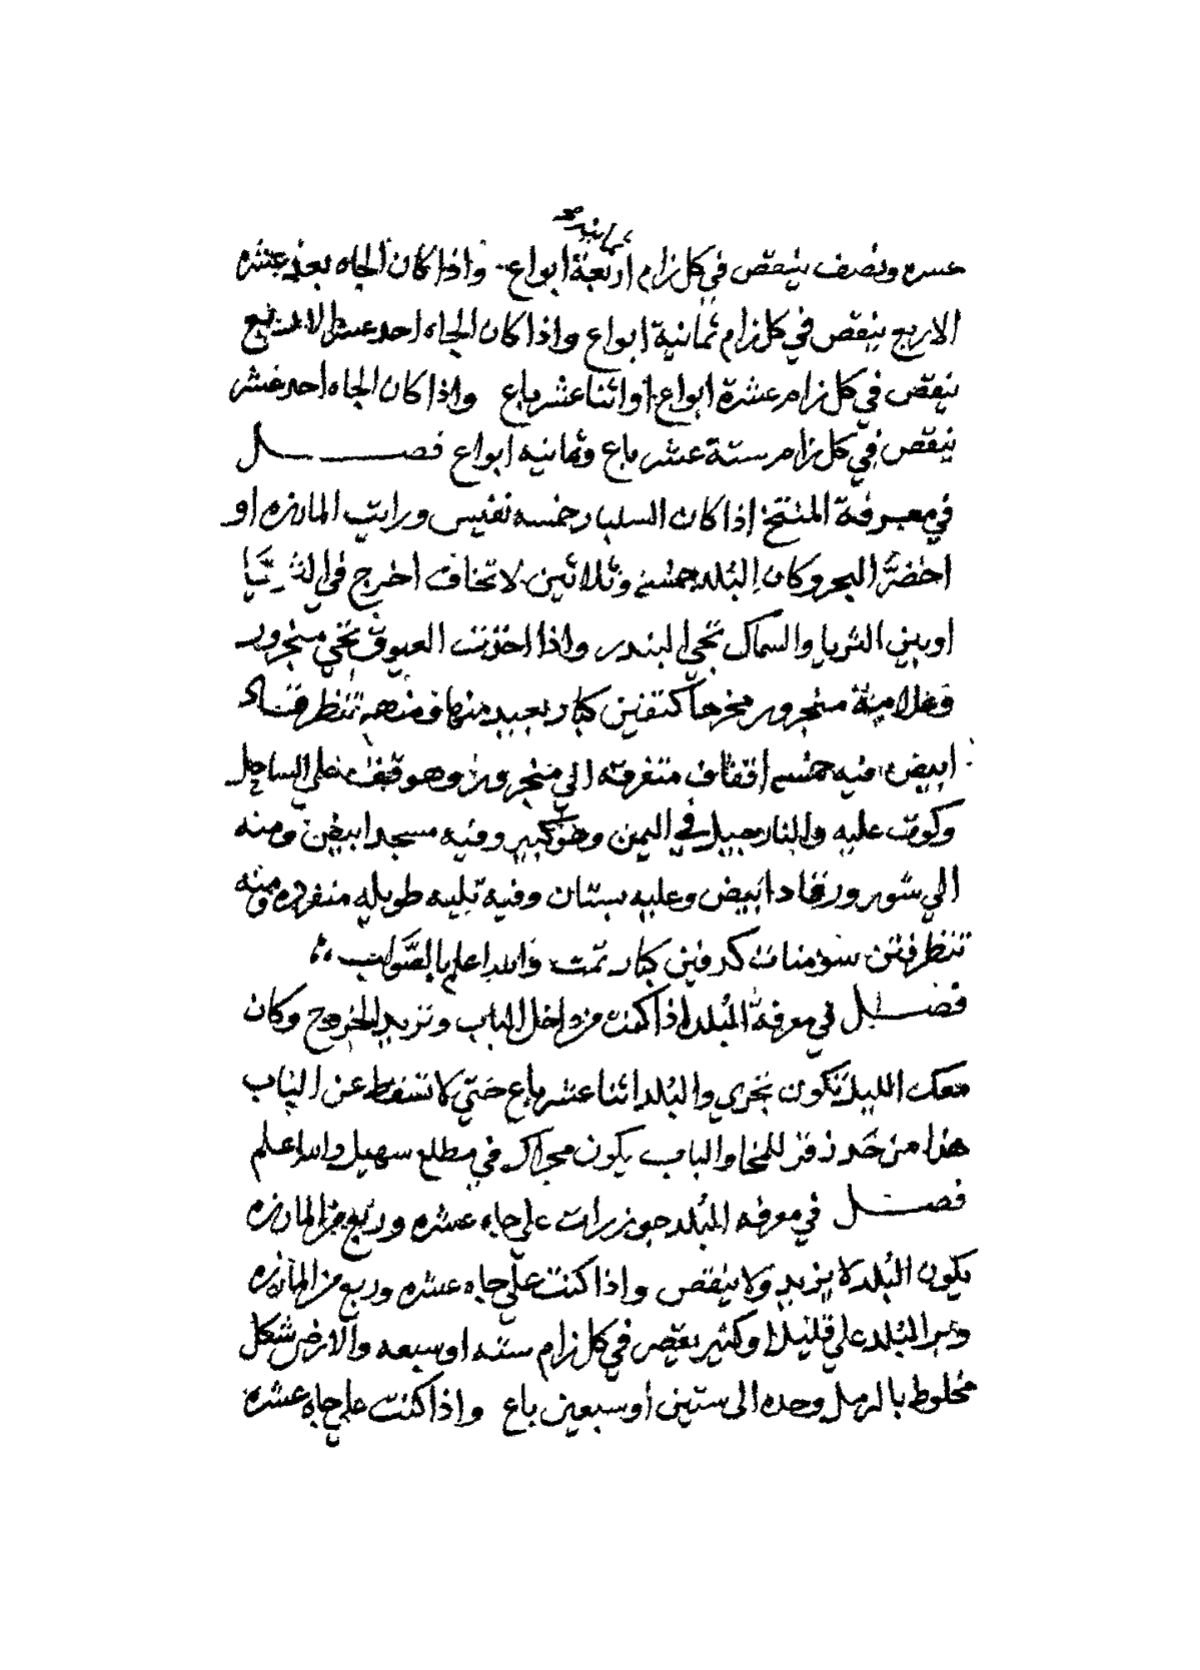 ثمانية
عشره ونصف ينقص في كل زام اربعة ابواع. واذا كان الجاه بعد عشره
الاربع ينقص في كل زام ثمانية ابواع واذا كان الجاه احد عشر الا ربع
ينقص في كل زام عشرة ابواع او اثنا عشر باع واذا كان الجاه احد عشر
ينقص في كل زام ستة عشر باع وثمانيه ابواع فصل
في معرفة المنتخ اذا كان السلبار خمسه نفيس ورايت المارزه او
اخضر البحر وكان البلد خمسه وثلاثين لا تخاف اخرج في الثريا
اوبين الثريا والسماك تجي البندر واذا اخذت العيوق تجي منجرور
وعلامة منجرور كتفين كبار بعيد منها ومنه تنظر قتاد
ابيض فيه خمسه اقفاف متفرقه الي منجرور وهو قفف علي الساحل
وكوت عليه والنارجيل في اليمن وهو كبير وفيه مسجد ابيض ومنه
الي سور ابيض وعليه بستان وفيه تليه طويله منفرده ومنه
تنظر سومنات كدفين كبار تمت والله اعلم بالصواب
فصل في معرفة البلد اذا كنت من داخل الباب وتريد الخروج وكان
معك الليل تكون تجري والبلد اثنا عشر باع حتي لا تسقط عن الباب
هذا من حد زقر للمخا والباب يكون مجراك في مطلع سهيل والله اعلم
فصل في معرفه البلد جوزرات علي جاه عشره وربع من المارزه
يكون البلد لا يزيد ولا ينقص واذا كنت علي جاه عشره وربع من المارزه
وعبر البلد علي قليلا او كثير ينقص في كل زام سته او سبعه والارض شكل
مخلوط بالرمل وحده الى ستين او سبعين باع واذا كنت علي جاه عشره